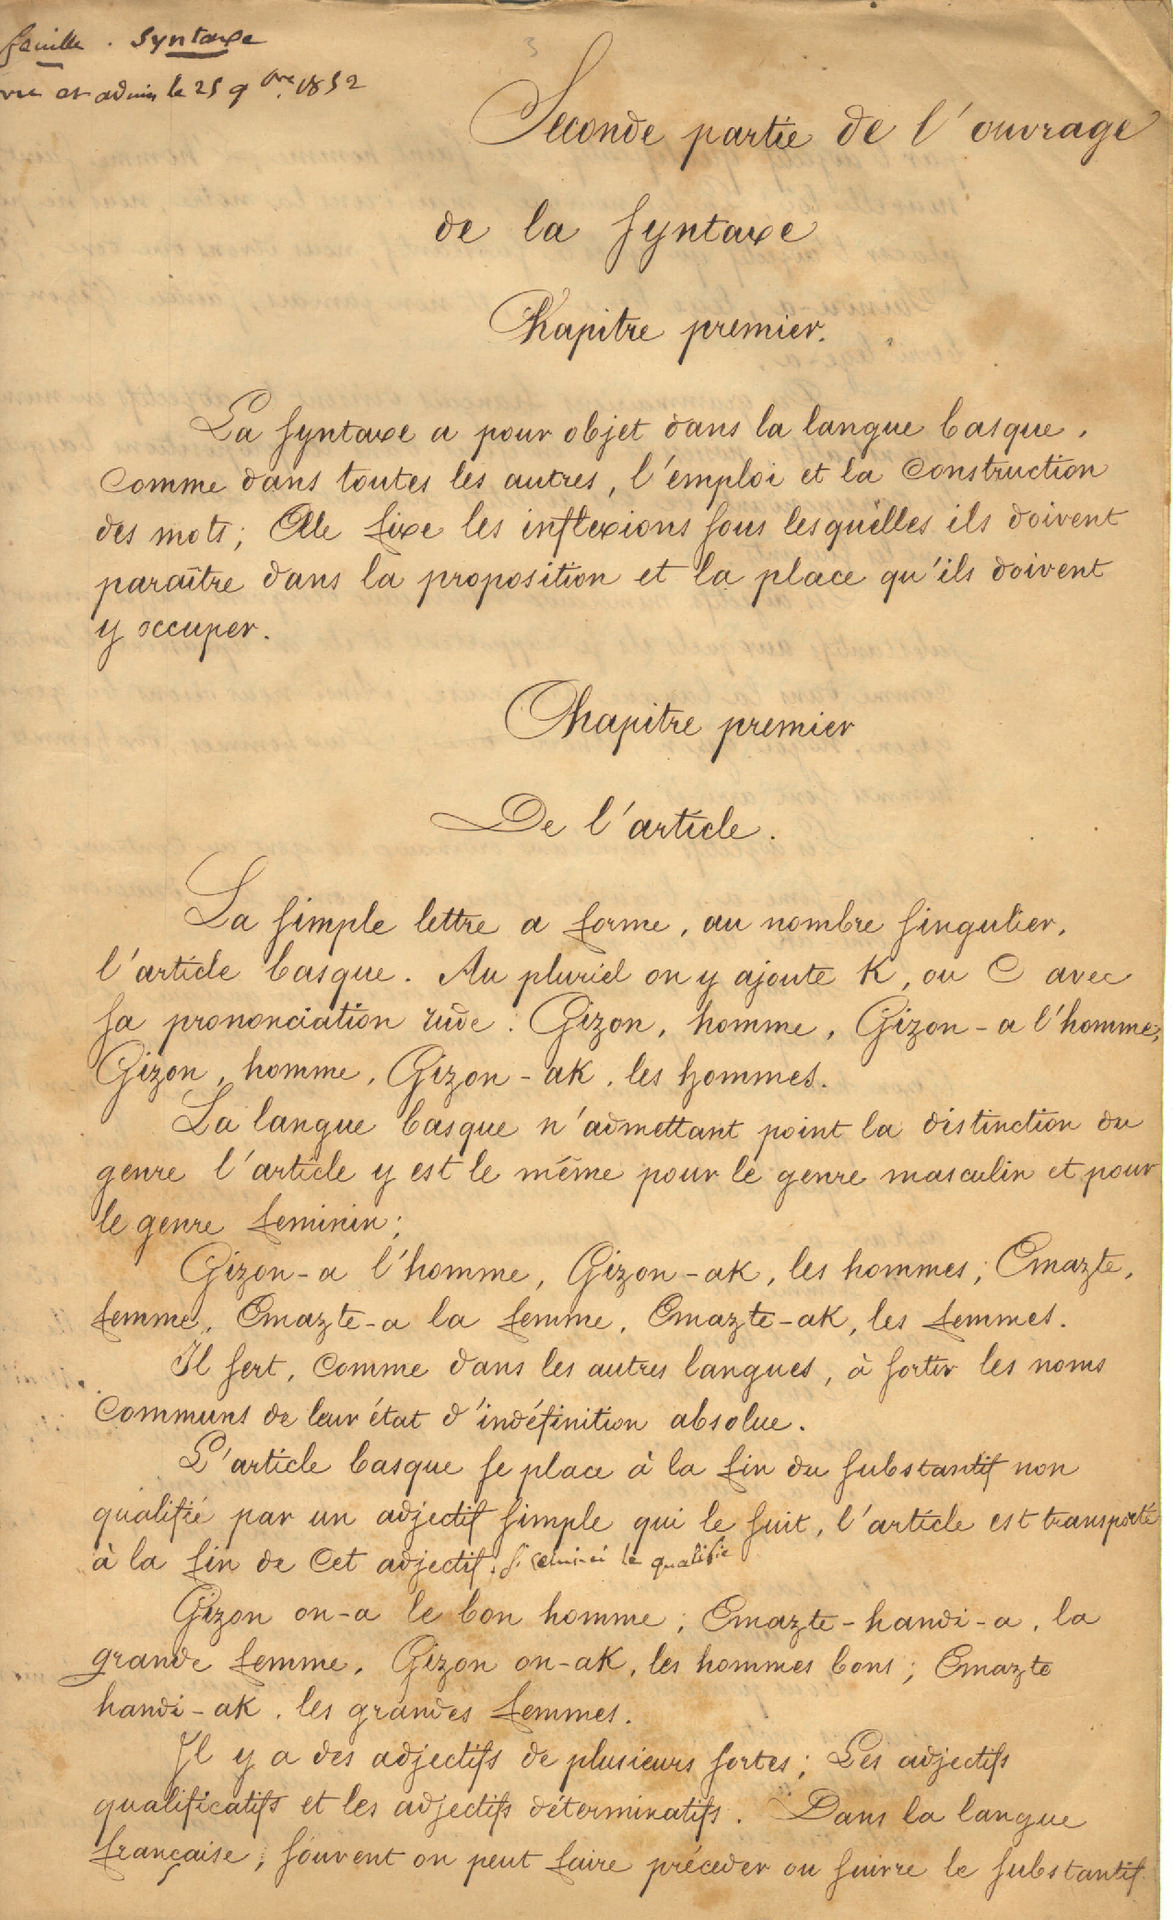 feuille . Syntaxe
vu et admis le 25 9bre 1852
Seconde partie de l'ouvrage
de la Syntaxe
Chapitre premier.
La Syntaxe a pour objet dans la langue basque,
comme dans toutes les autres, l'emploi et la construction
des mots; Elle fixe les inflexions sous lesquelles ils doivent
paraître dans la proposition et la place qu'ils doivent
y occuper.
Chapitre premier
De l'article.
La simple lettre a forme, au nombre singulier,
l'article basque. Au pluriel on y ajoute K, ou C avec
sa prononciation rude. Gizon, homme, Gizon-a l'homme,
Gizon, homme, Gizon-ak, les hommes.
La langue basque n'admettant point la distinction du
genre l'article y est le même pour le genre masculin et pour
le genre feminin;
Gizon-a l'homme, Gizon-ak, les hommes; Emazte,
femme, Emazte-a la femme, Emazte-ak, les femmes.
Il sert, comme dans les autres langues, à sortir les noms
communs de leur état d'indéfinition absolue.
L'article basque se place à la fin du substantif non
qualifié par un adjectif simple qui le suit, l'article est transporté
à la fin de cet adjectif, si celui-ci le qualifie
Gizon on-a le bon homme; Emazte-handi-a, la
grande femme, Gizon on-ak, les hommes bons; Emazte
handi-ak, les grandes femmes.
Il y a des adjectifs de plusieurs sortes; Les adjectifs
qualificatifs et les adjectifs déterminatifs. Dans la langue
française, souvent on peut faire préceder ou suivre le substantif